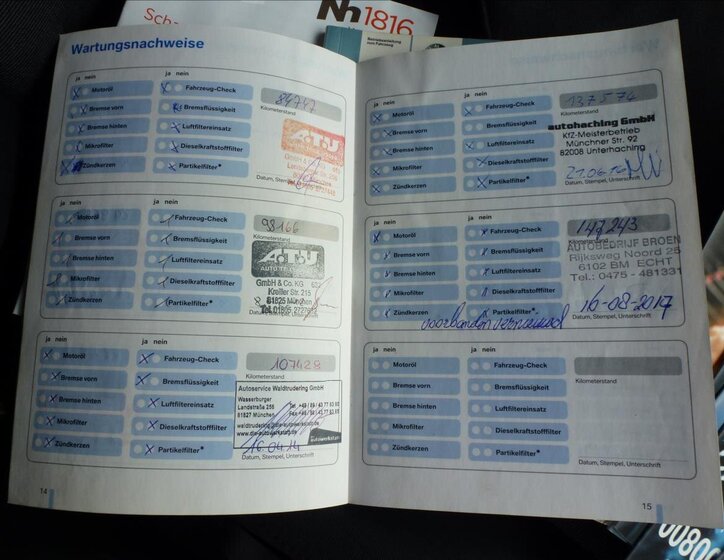 Scha
Nh1816
Betriebsanleitung
zum Fahrzeug
Wartungsnachweise
ja nein
ja nein
Motoröl
Fahrzeug-Check
84747
Bremse vorn
Bremsflüssigkeit
Kilometerstand
Bremse hinten
Luftfiltereinsatz
A.T.U
Mikrofilter
Dieselkraftstofffilter
GmbH &
Zündkerzen
Partikelfilter*
Datum, Stempel, Unterschrift
ja nein
ja nein
Motoröl
Fahrzeug-Check
98166
Bremse vorn
Bremsflüssigkeit
Kilometerstand
Bremse hinten
Luftfiltereinsatz
A.T.U
Mikrofilter
Dieselkraftstofffilter
GmbH & Co. KG 602
Kreiller Str. 215
81825 München
Tel. 01805 2727652
Zündkerzen
Partikelfilter*
Datum, Stempel, Unterschrift
ja nein
ja nein
Motoröl
Fahrzeug-Check
107428
Bremse vorn
Bremsflüssigkeit
Kilometerstand
Bremse hinten
Luftfiltereinsatz
Autoservice Waldtrudering GmbH
Wasserburger
Landstraße
81827 München
Mikrofilter
Dieselkraftstofffilter
16.04.14
Zündkerzen
Partikelfilter*
Datum, Stempel, Unterschrift
14
ja nein
ja nein
Motoröl
Fahrzeug-Check
137574
Bremse vorn
Bremsflüssigkeit
Kilometerstand
Bremse hinten
Luftfiltereinsatz
autohaching GmbH
Kfz-Meisterbetrieb
Münchner Str. 92
82008 Unterhaching
Mikrofilter
Dieselkraftstofffilter
21.06.16
Zündkerzen
Partikelfilter*
Datum, Stempel, Unterschrift
ja nein
ja nein
Motoröl
Fahrzeug-Check
147243
Bremse vorn
Bremsflüssigkeit
Kilometerstand
AUTOBEDRIJF BROEN
Rijksweg Noord 25
6102 BM ECHT
Tel.: 0475 - 481331
Bremse hinten
Luftfiltereinsatz
Mikrofilter
Dieselkraftstofffilter
16-08-2017
Zündkerzen
Partikelfilter*
Datum, Stempel, Unterschrift
ja nein
ja nein
Motoröl
Fahrzeug-Check
Bremse vorn
Bremsflüssigkeit
Kilometerstand
Bremse hinten
Luftfiltereinsatz
Mikrofilter
Dieselkraftstofffilter
Zündkerzen
Partikelfilter*
Datum, Stempel, Unterschrift
15
0080